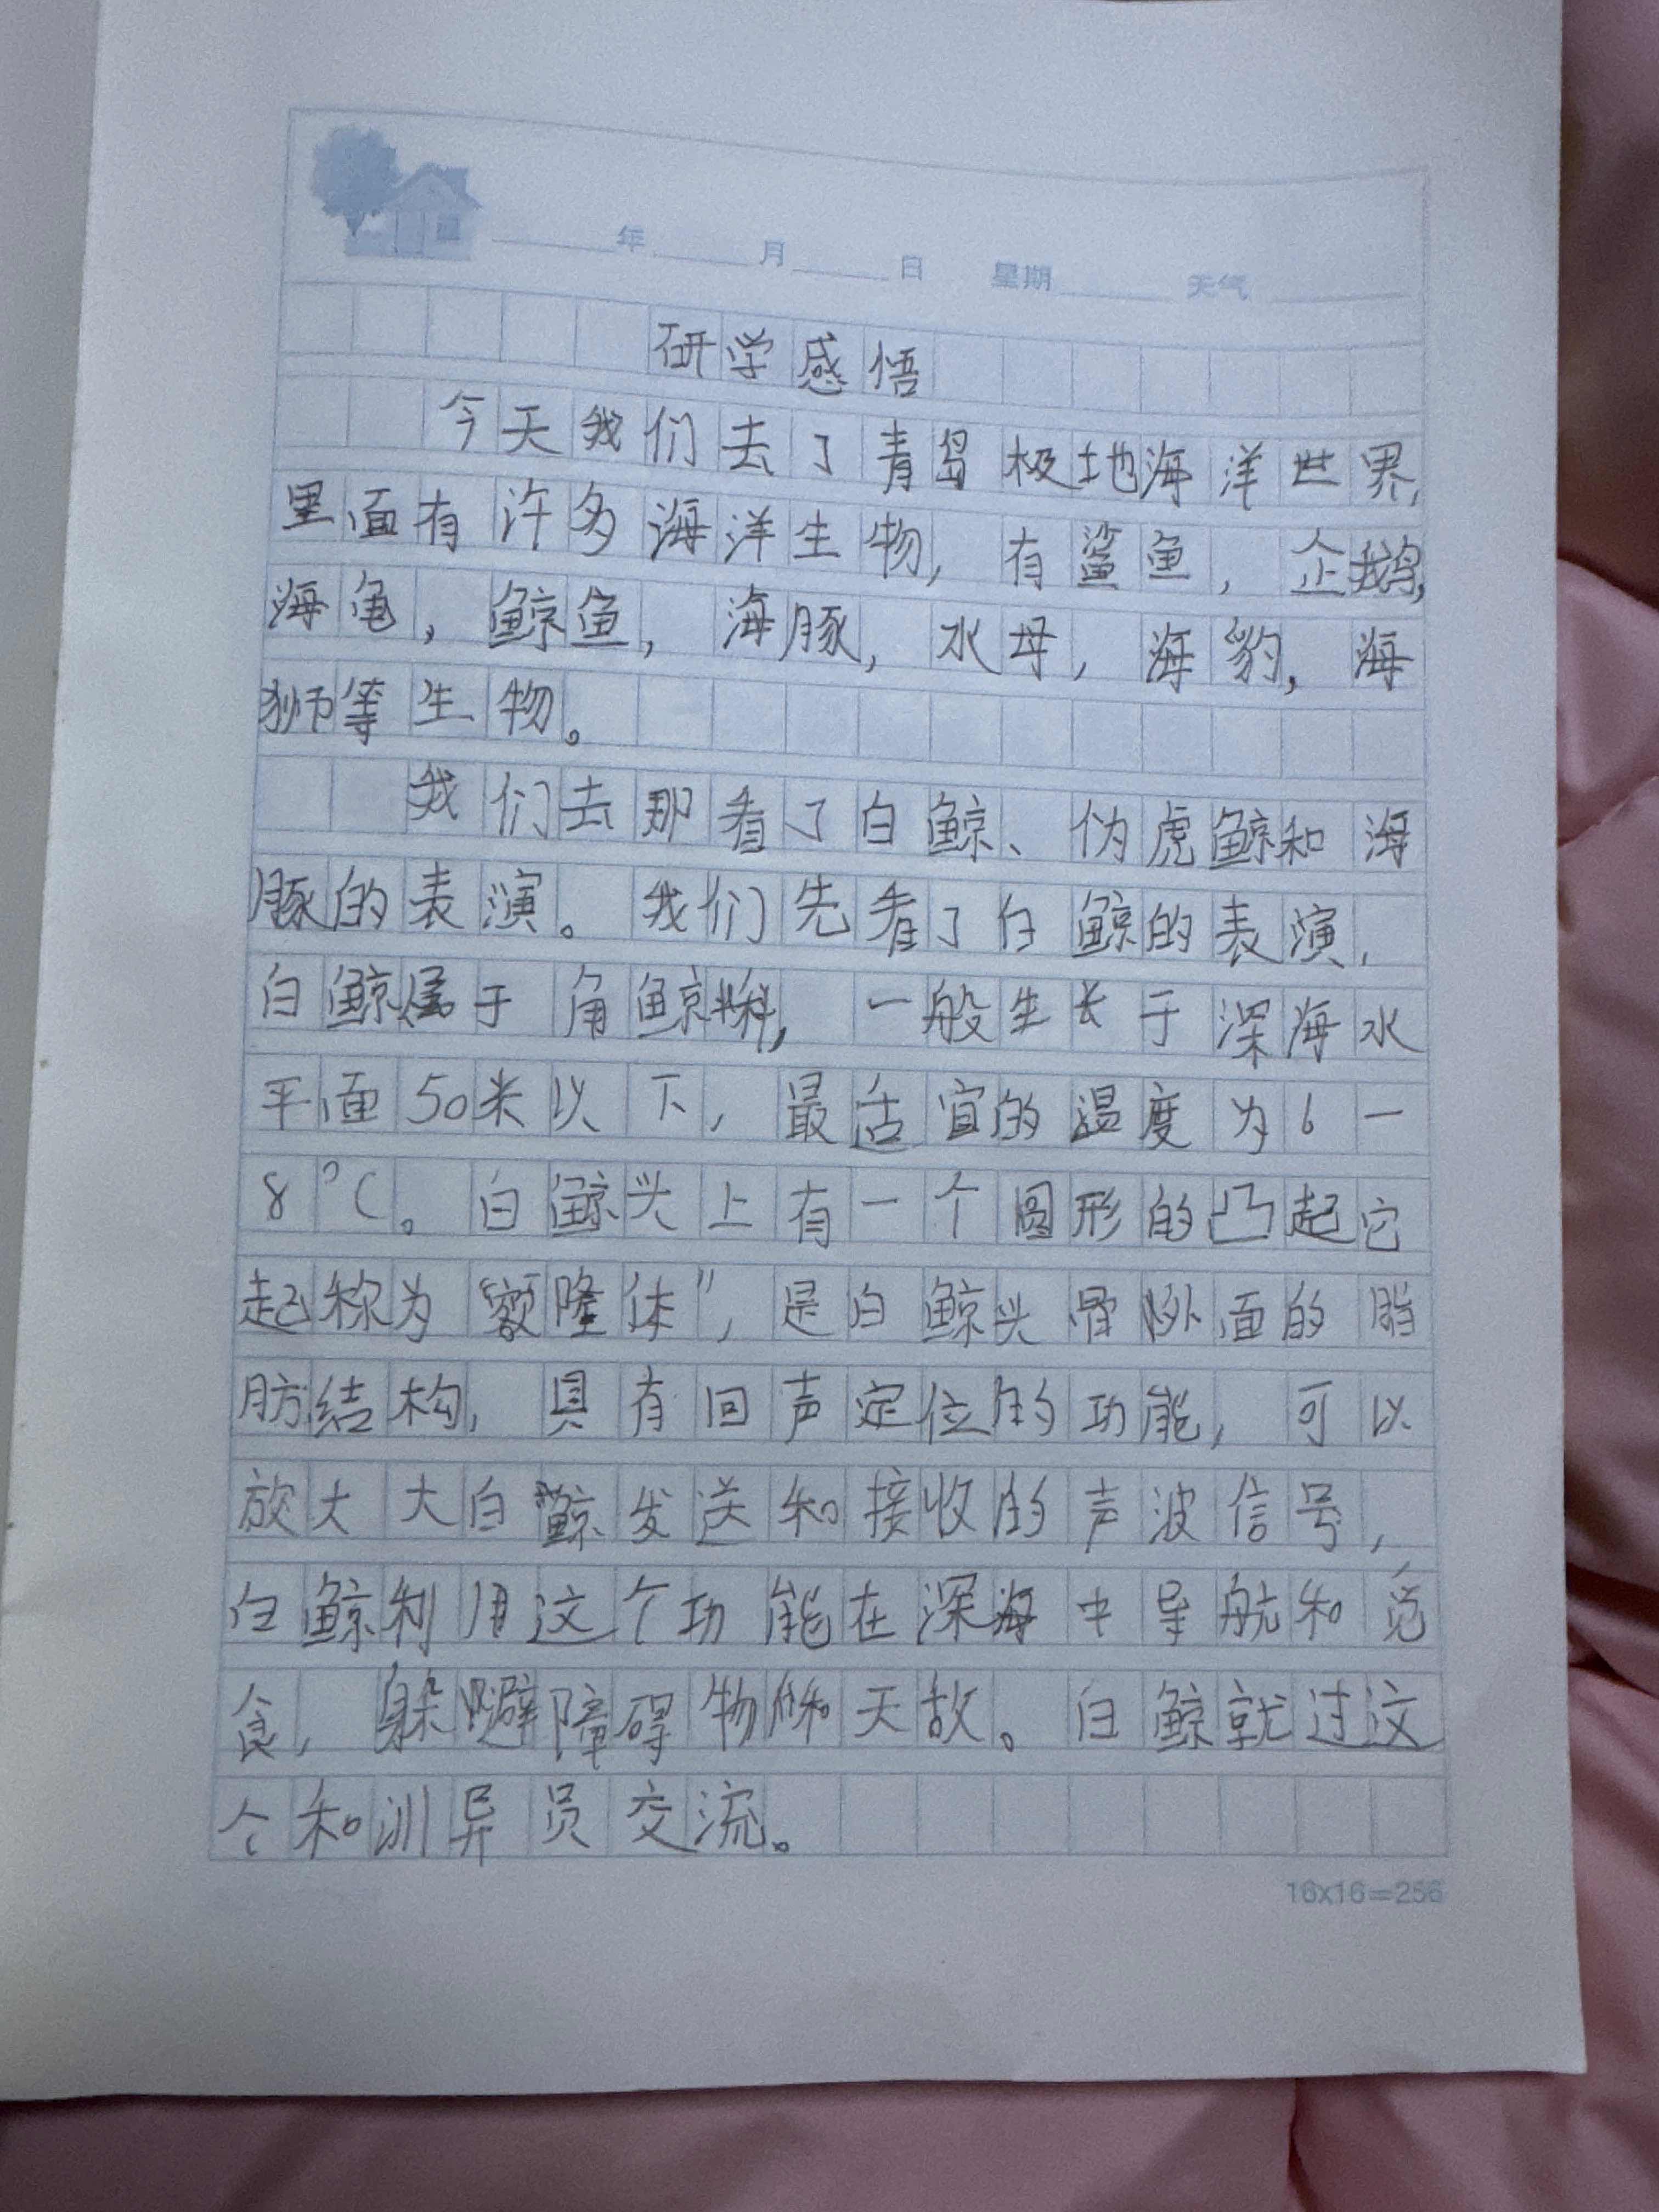 年 月 日 星期 天气
研学感悟
今天我们去了青岛极地海洋世界,
里面有许多海洋生物,有鲨鱼,企鹅,
海龟,鲸鱼,海豚,水母,海豹,海
狮等生物。
我们去那看了白鲸、伪虎鲸和海
豚的表演。我们先看了白鲸的表演,
白鲸属于角鲸科,一般生长于深海水
平面50米以下,最适宜的温度为6一
8℃。白鲸头上有一个圆形的凸起它
起称为“额隆体”,是白鲸头骨外面的脂
肪结构,具有回声定位的功能,可以
放大大白鲸发送和接收的声波信号,
白鲸利用这个功能在深海中导航和觅
食,躲避障碍物和天敌。白鲸就过这
个和训导员交流。
16x16=256